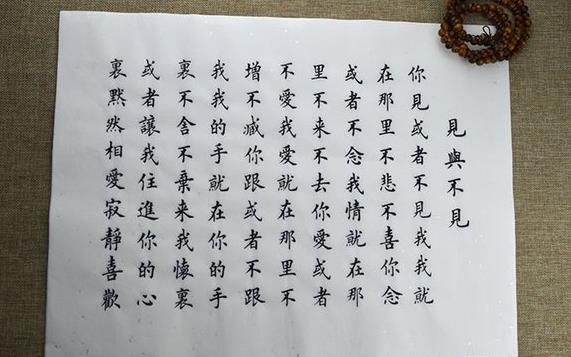 見與不見
你見或者不見我我就
在那里不悲不喜你念
或者不念我情就在那
里不来不去你愛或者
不愛我愛就在那里不
增不减你跟或者不跟
我我的手就在你的手
裏不舍不棄来我懷裏
或者讓我住進你的心
裏默然相愛寂靜喜歡